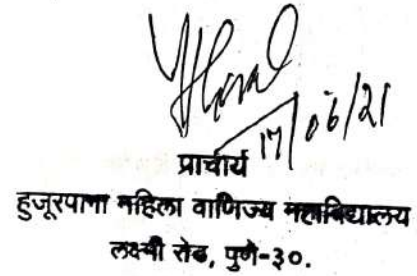 17/06/21
प्राचार्य
हुजूरपागा महिला वाणिज्य महाविद्यालय
लक्ष्मी रोड, पुणे-३०.